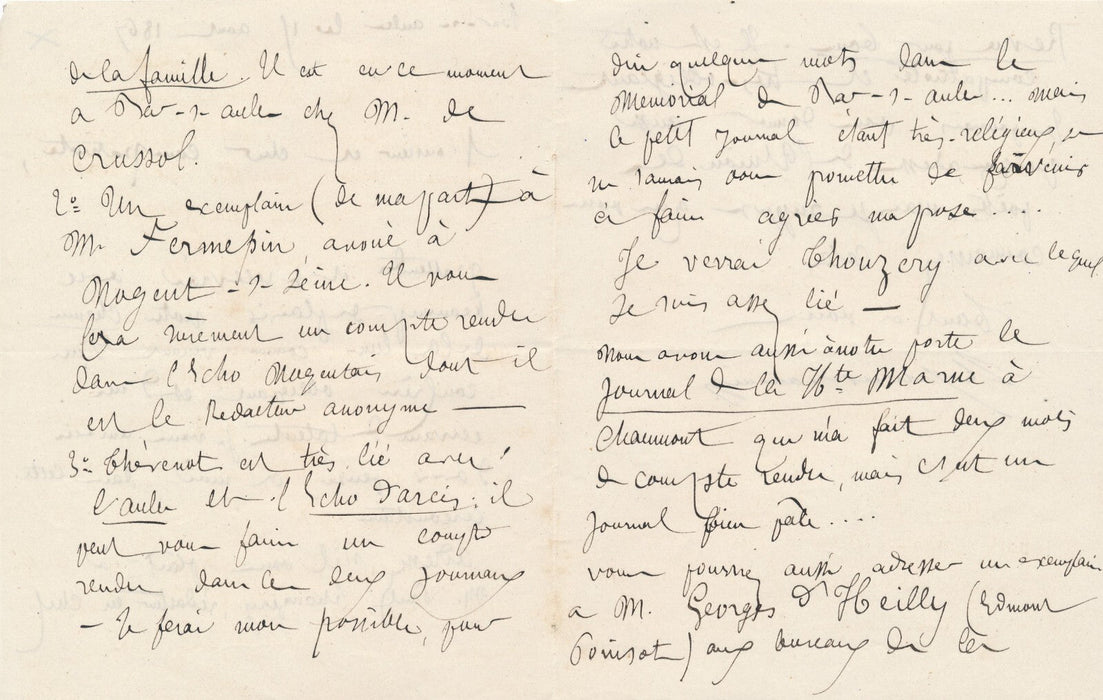 de la famille. Il est en ce moment
a Bar-s-aube chez M. de
Crussol.
2o Un exemplaire (de ma part) à
M. Fermepin avoué à
Nogent-s-Seine. Il vous
fera surement un compte rendu
dans l'Echo Nogentais dont il
est le Redacteur anonyme —
3o Thévenot est très lié avec
l'aube et l'Echo d'arcis: il
peut vous faire un compte
rendu dans les deux journaux
— Je ferai mon possible, pour
dire quelques mots dans le
Memorial de Bar-s-aube... mais
ce petit journal étant très-religieux, je
ne saurais vous promettre de parvenir
à faire agréer ma prose....
Je verrai Thouzery avec lequel
je suis assez lié —
nous avons aussi à notre porte le
Journal de la Hte Marne à
Chaumont qui m'a fait deux mots
de compte rendu, mais c'est un
journal bien pâle....
vous pourriez aussi adresser un exemplaire
a M. Georges d'Heilly (Edmont
Poinsot) aux bureaux de la